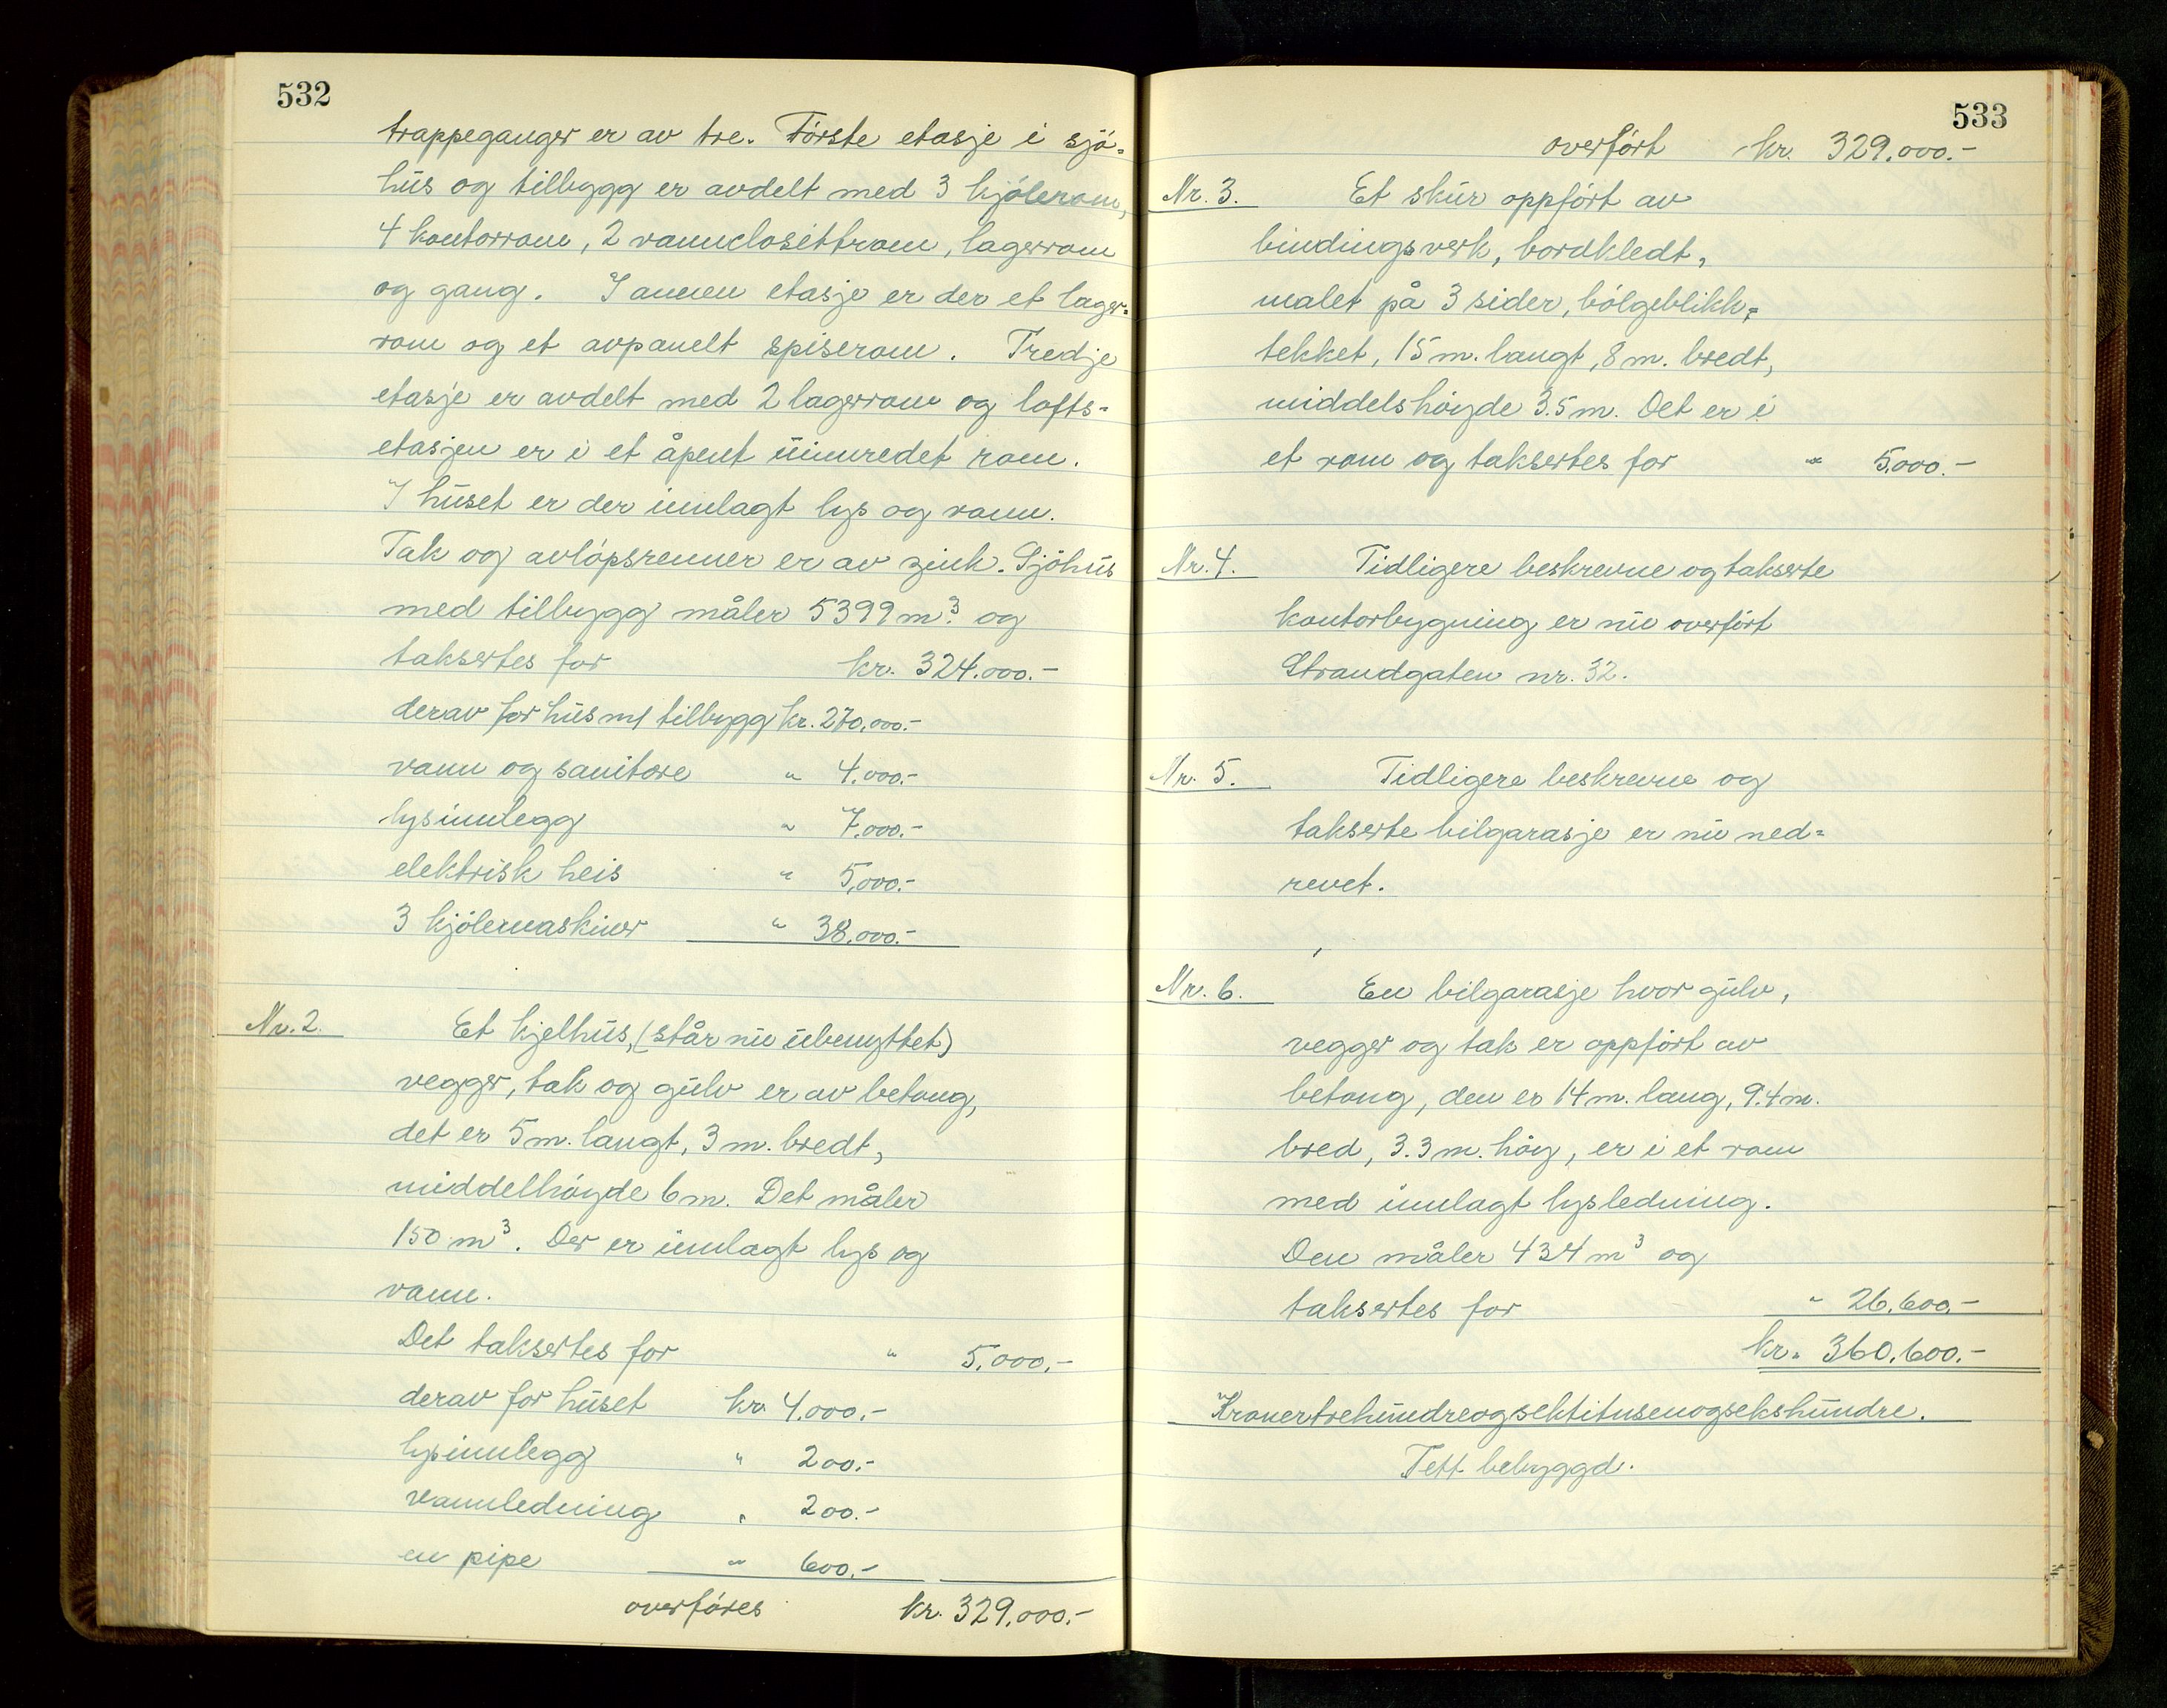 532
trappeganger er av tre. Første etasje i sjø-
hus og tilbygg er avdelt med 3 kjølerom,
4 kontorrom, 2 vannclosettrom, lagerrom
og gang. I annen etasje er der et lager-
rom og et avpanelt spiserom. Tredje
etasje er avdelt med 2 lagerrom og lofts-
etasjen er i et åpent uinnredet rom.
I huset er der innlagt lys og vann.
Tak og avløpsrenner er av zink. Sjøhus
med tilbygg måler 5399 m³. og
taksertes for kr. 324.000.-
derav for hus m/ tilbygg kr. 270.000.-
vann og sanitære " 4.000.-
lysinnlegg " 7.000.-
elektrisk heis " 5.000.-
3 kjølemaskiner " 38.000.-
Nr. 2. Et kjelhus, (står nu ubenyttet)
vegger, tak og gulv er av betong,
det er 5 m. langt, 3 m. bredt,
middelhøyde 6 m. Det måler
150 m³. Der er innlagt lys og
vann.
Det taksertes for " 5.000.-
derav for huset kr. 4.000.-
lysinnlegg " 200.-
vannledning " 200.-
en pipe " 600.-
overføres kr. 329.000.-
533
overført kr. 329.000.-
Nr. 3. Et skur oppført av
bindingsverk, bordkledt,
malet på 3 sider, bølgeblikk-
tekket, 15 m. langt, 8 m. bredt,
middelshøyde 3.5 m. Det er i
et rom og taksertes for " 5.000.-
Nr. 4. Tidligere beskrevne og takserte
kontorbygning er nu overført
Strandgaten nr. 32.
Nr. 5. Tidligere beskrevne og
takserte bilgarasje er nu ned-
revet.
Nr. 6. En bilgarasje hvor gulv,
vegger og tak er oppført av
betong, den er 14 m. lang, 9.4 m.
bred, 3.3 m. høy, er i et rom
med innlagt lysledning.
Den måler 434 m³ og
taksertes for " 26.600.-
kr. 360.600.-
Kronertrehundreogsektitusenogsekshundre.
Tett bebyggd.